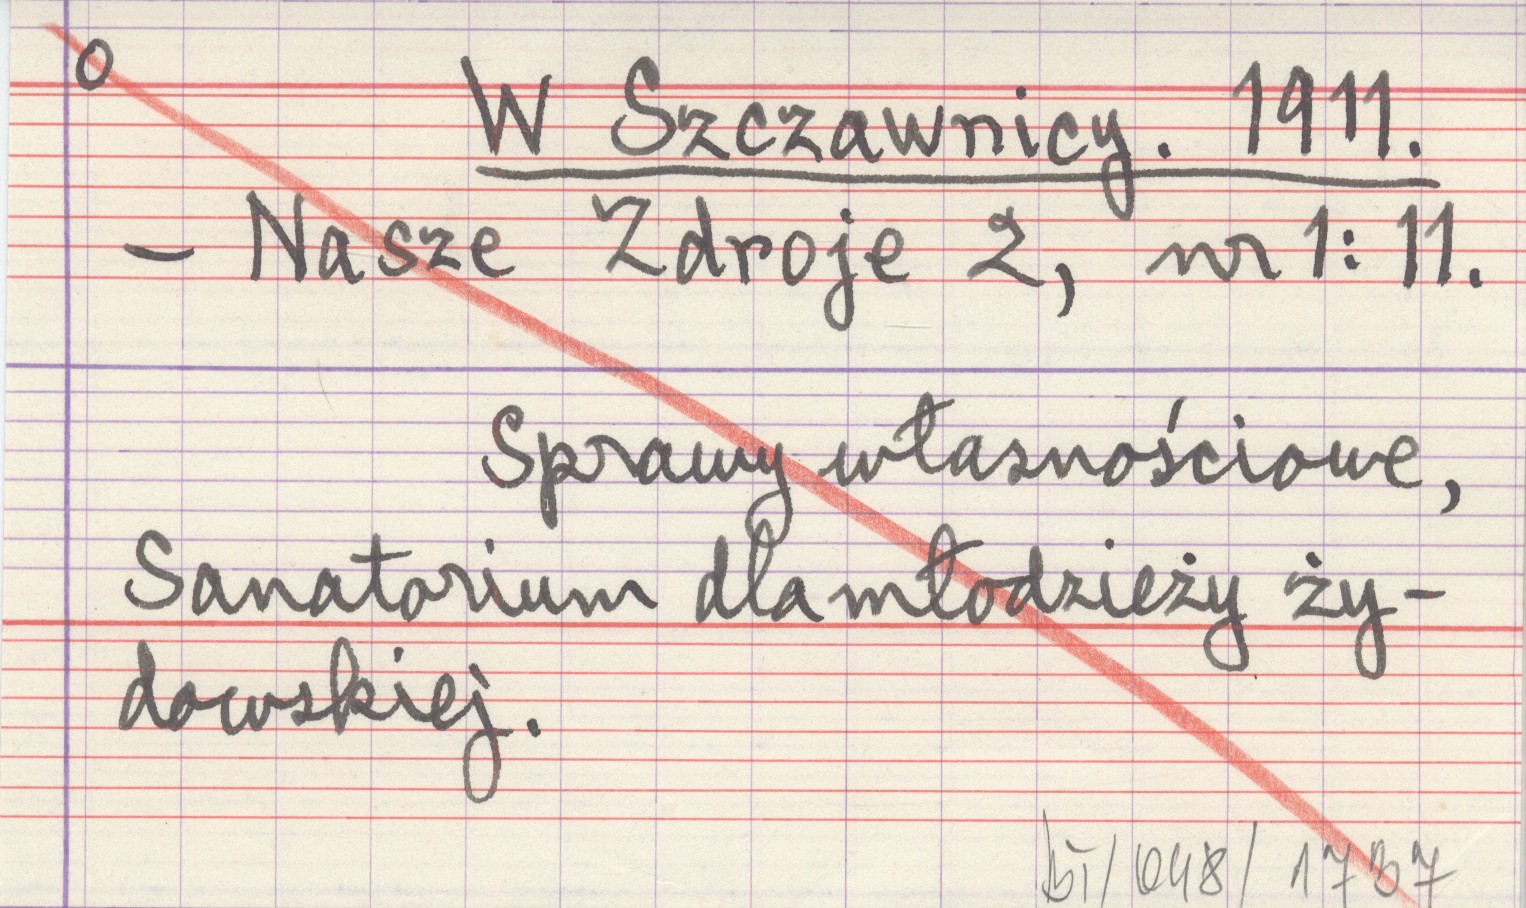 0
W Szczawnicy. 1911.
– Nasze Zdroje 2, nr 1: 11.
Sprawy własnościowe,
Sanatorium dla młodzieży ży-
dowskiej.
/ 048 / 1737